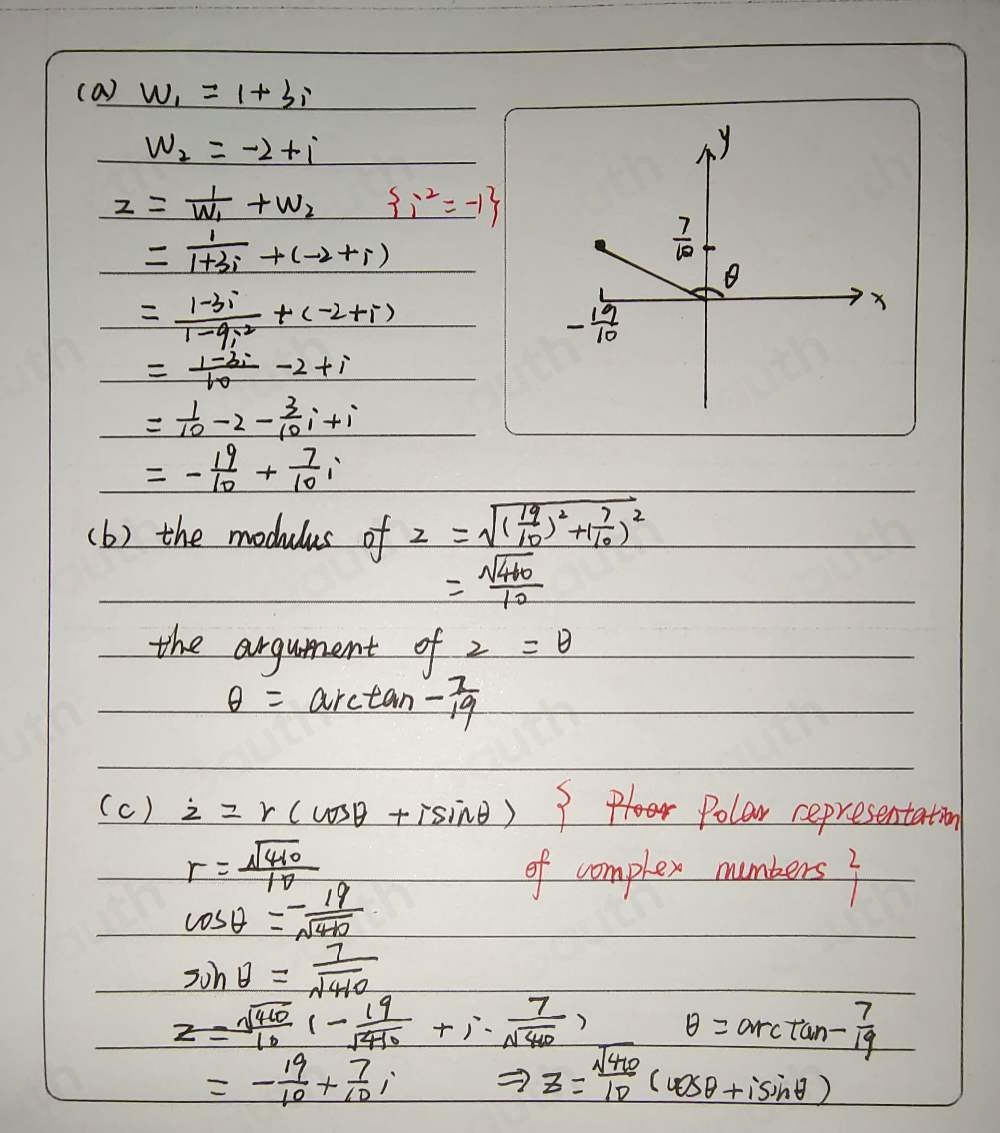 (a) W₁ = 1+3i
W₂ = -2+i
z = 1/W₁ + W₂ {i² = -1}
= 1/(1+3i) + (-2+i)
= (1-3i)/(1-9i²) + (-2+i)
= (1-3i)/10 - 2 + i
= 1/10 - 2 - 3/10 i + i
= - 19/10 + 7/10 i
y
7/10
θ
x
- 19/10
(b) the modulus of z = √((19/10)² + (7/10)²)
= √410/10
the argument of z = θ
θ = arctan - 7/19
(c) z = r (cosθ + isinθ) { Polar representation
of complex numbers }
r = √410/10
cosθ = - 19/√410
sinθ = 7/√410
z = √410/10 (- 19/√410 + i · 7/√410) θ = arctan - 7/19
= - 19/10 + 7/10 i ⇒ z = √410/10 (cosθ + isinθ)